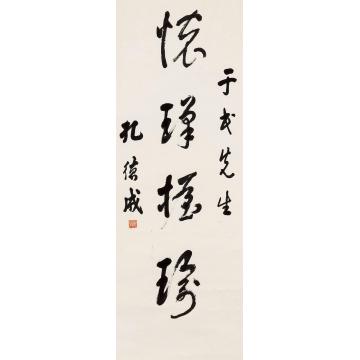 于先生
懷瑾握瑜
孔德成